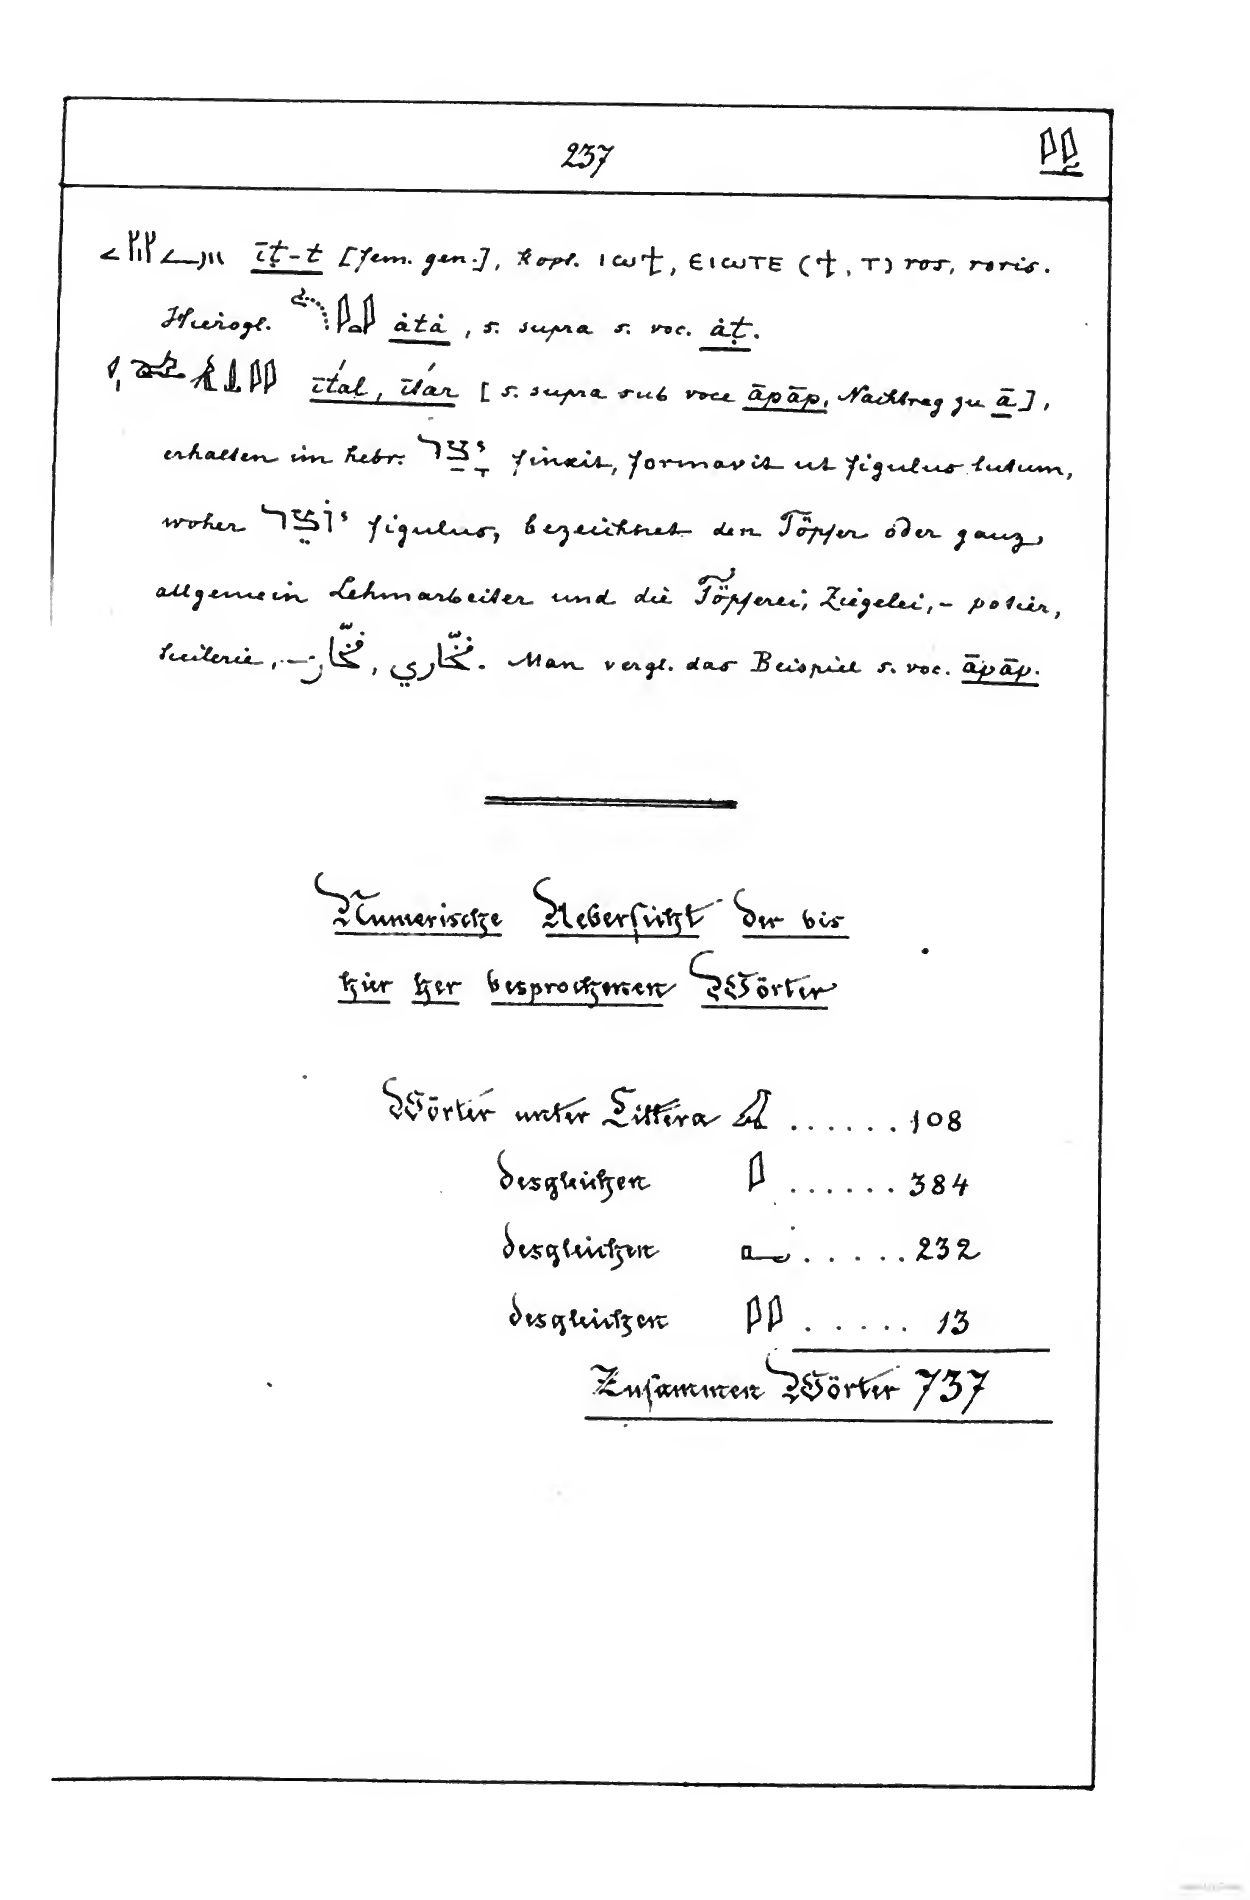 237 𓇌
īṭ-t [fem. gen.], kopt. ⲓⲱϯ, ⲉⲓⲱⲧⲉ (ϯ, ⲧ) ros, roris.
Hierogl. ȧtȧ, s. supra s. voc. ȧṭ.
ītál, ītár [s. supra sub voce āpāp, Nachtrag zu ā],
erhalten im hebr. יָצַר finxit, formavit ut figulus lutum,
woher יֹוצֵר figulus, bezeichnet den Töpfer oder ganz
allgemein Lehmarbeiter und die Töpferei, Ziegelei, - potier,
tuilerie, فخّار, فخّاري. Man vergl. das Beispiel s. voc. āpāp.
Numerische Uebersicht der bis
hier her besprochenen Wörter
Wörter unter Littera 𓄿 ...... 108
desgleichen 𓇋 ...... 384
desgleichen 𓂝 ...... 232
desgleichen 𓇌 ..... 13
Zusammen Wörter 737